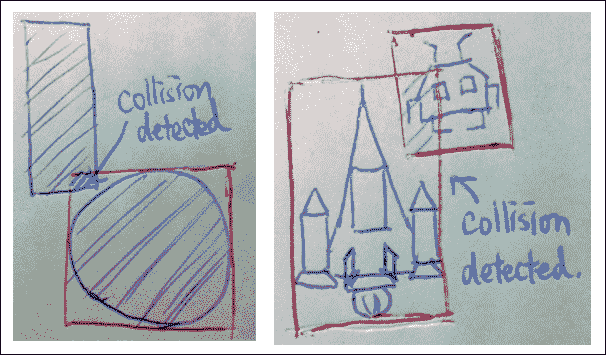 collision
detected
collision
detected.